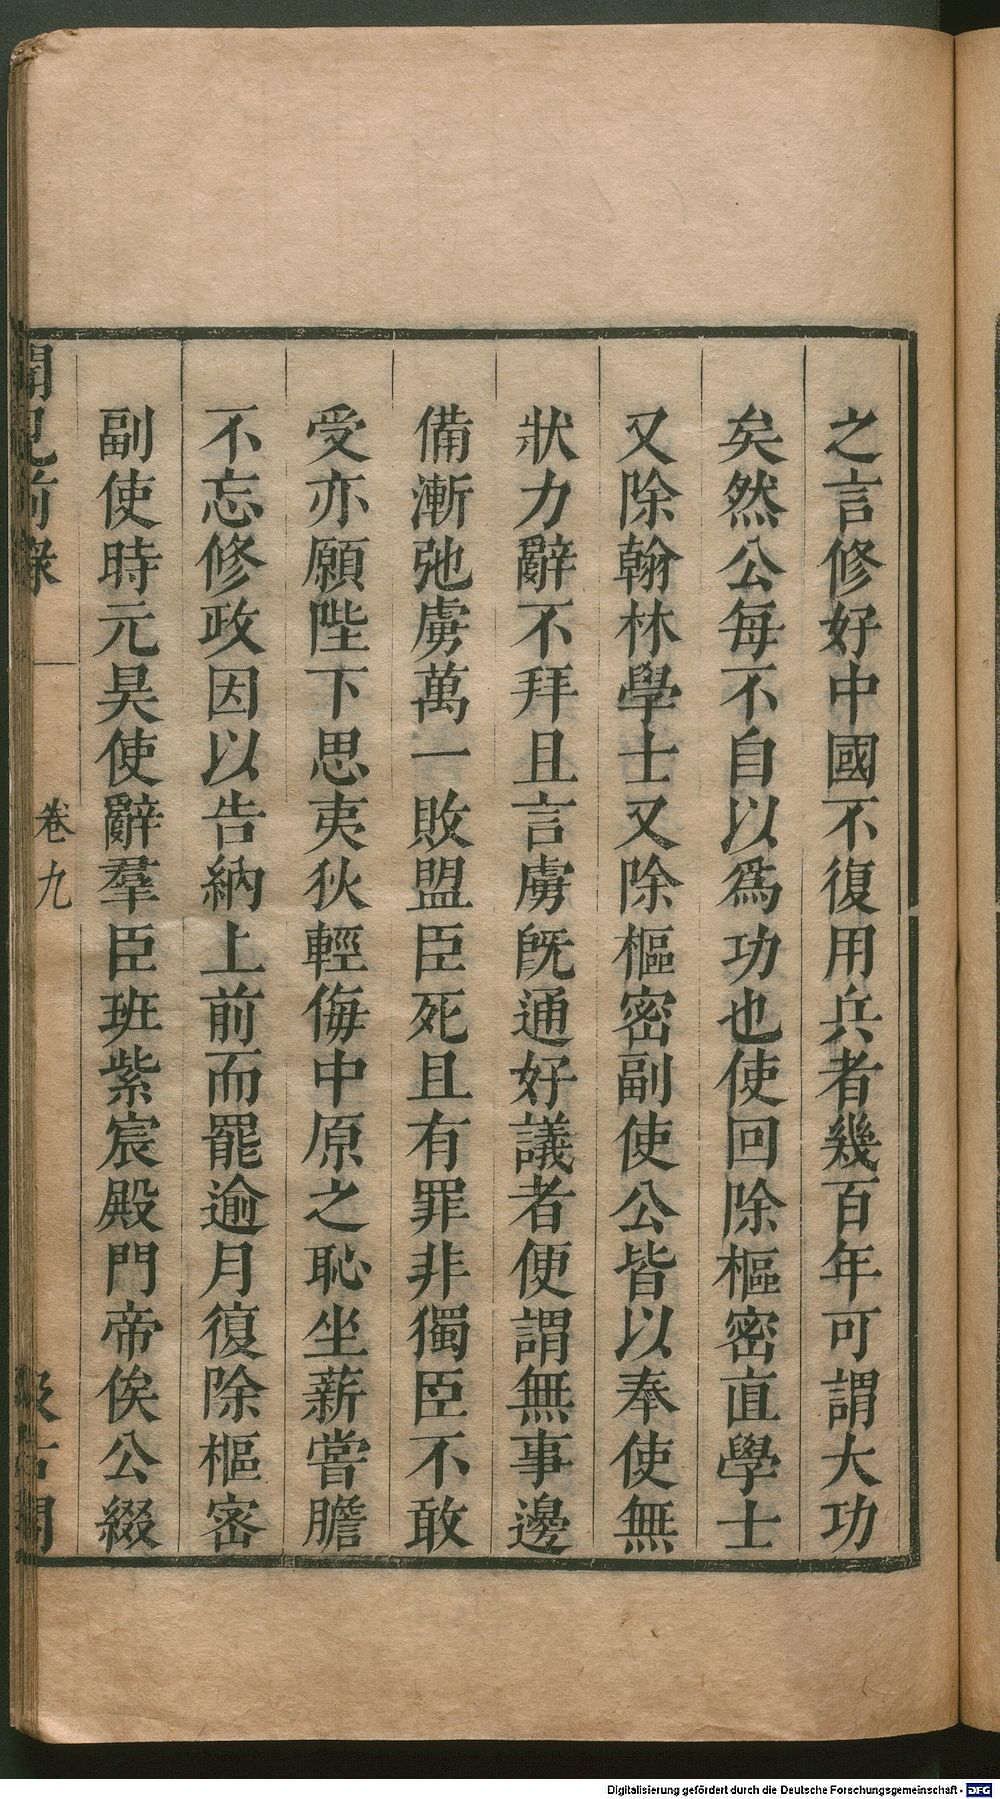 之言修好中國不復用兵者幾百年可謂大功
矣然公每不自以爲功也使回除樞密直學士
又除翰林學士又除樞密副使公皆以奉使無
狀力辭不拜且言虜旣通好議者便謂無事邊
備漸弛虜萬一敗盟臣死且有罪非獨臣不敢
受亦願陛下思夷狄輕侮中原之恥坐薪嘗膽
不忘修政因以告納上前而罷逾月復除樞密
副使時元昊使辭羣臣班紫宸殿門帝俟公綴
聞見前錄
卷九
汲古閣
Digitalisierung gefördert durch die Deutsche Forschungsgemeinschaft - DFG